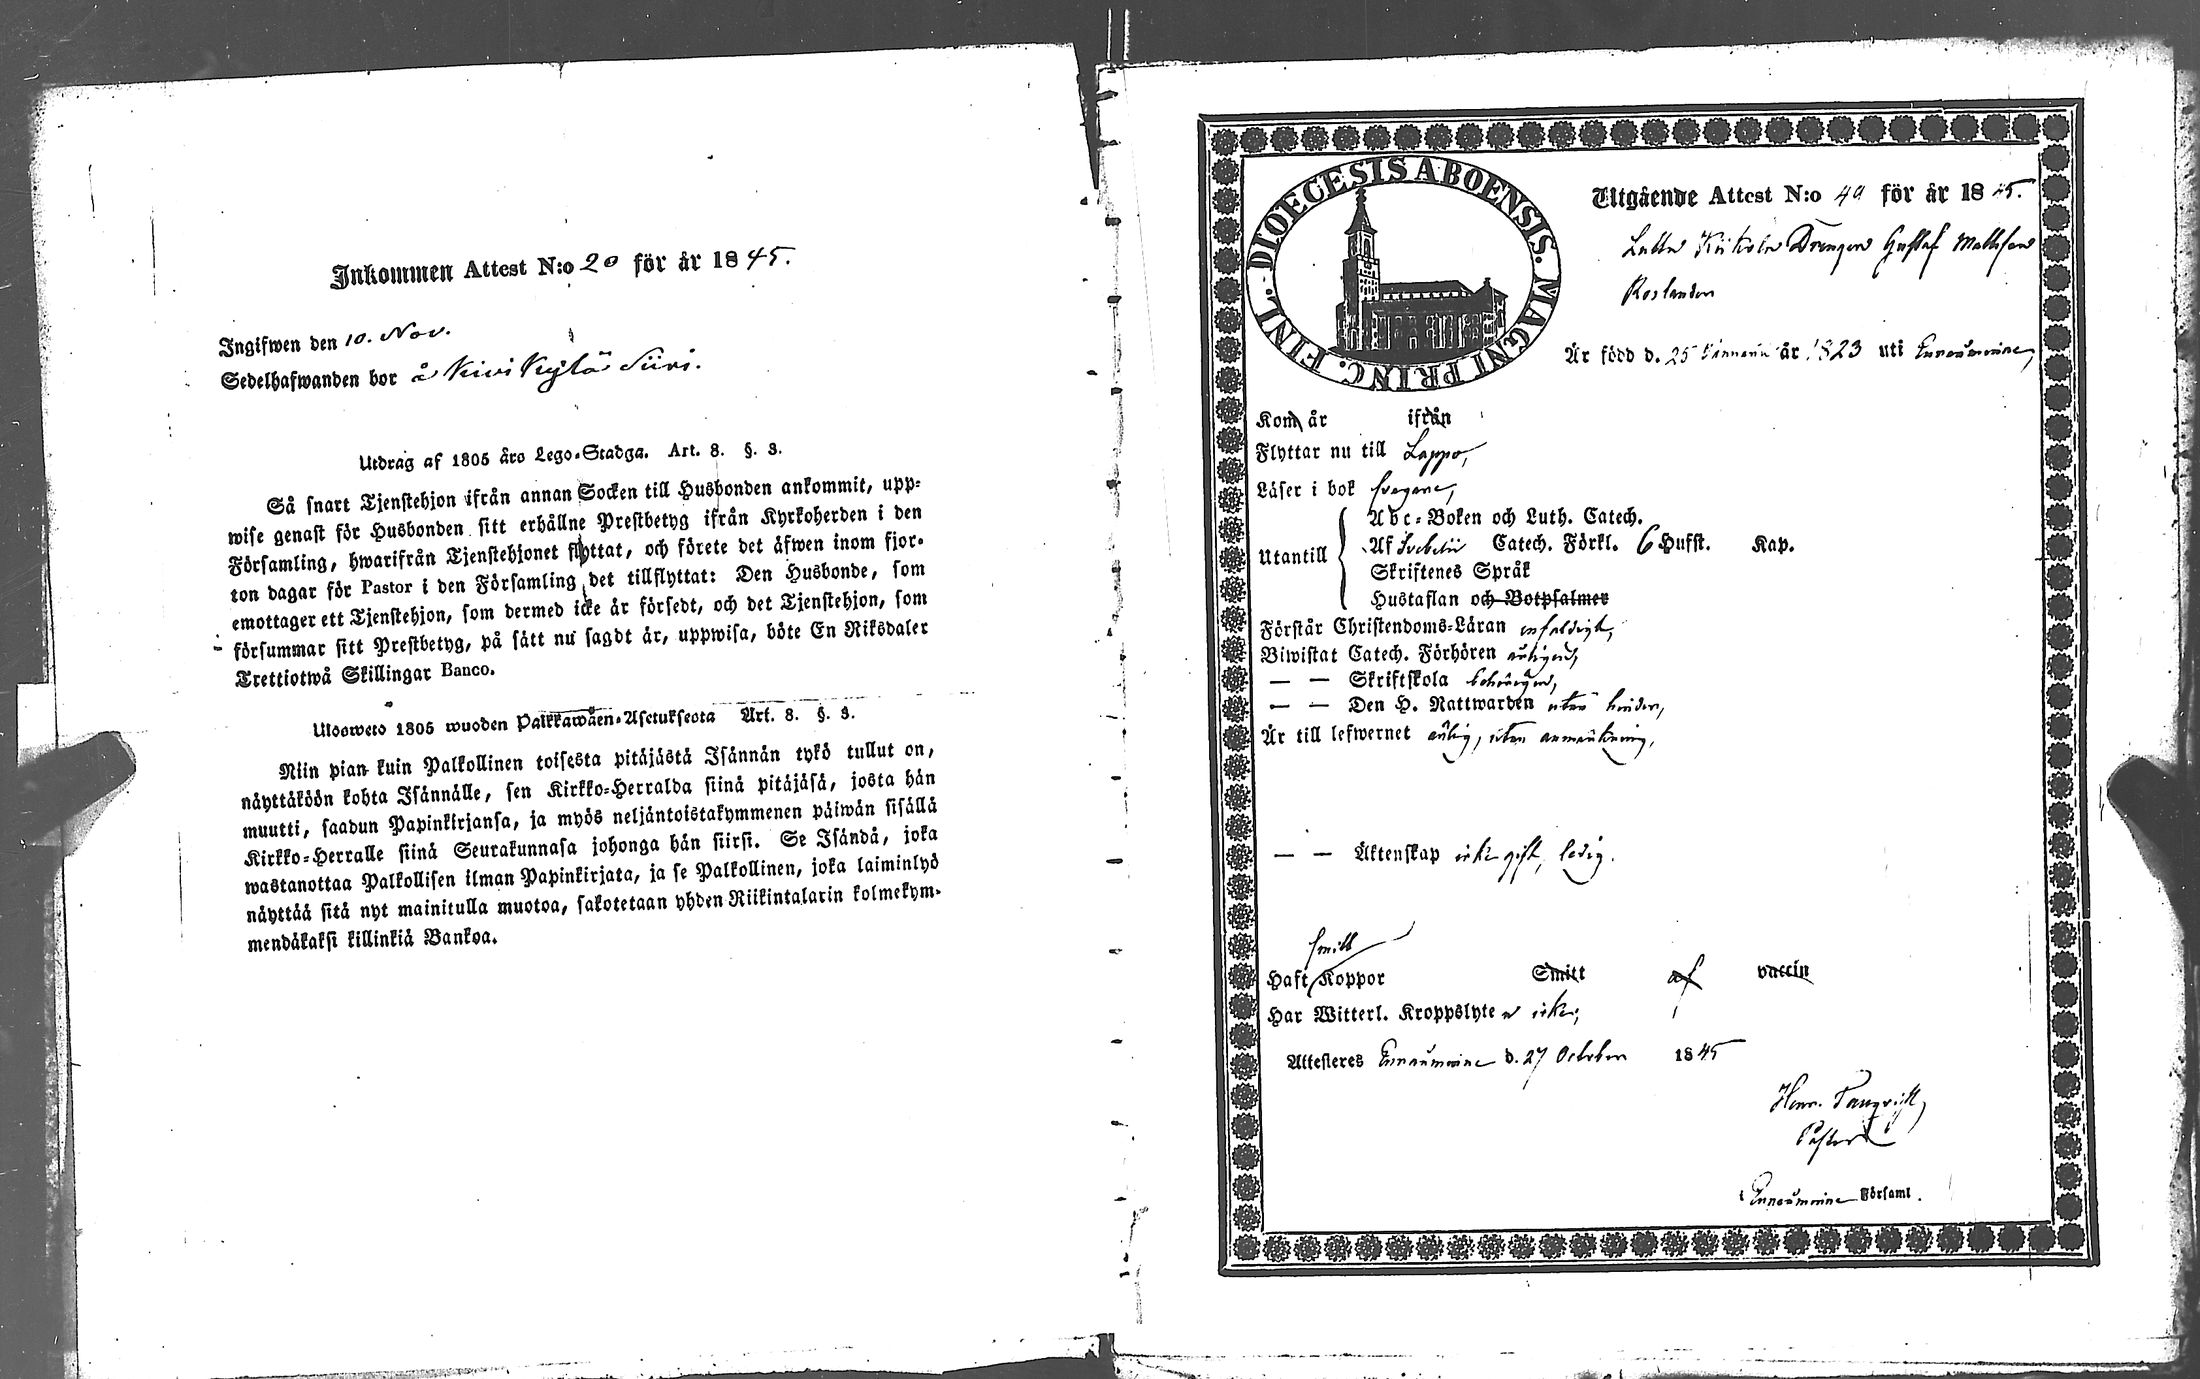 Inkommen Attest N:o 20 för år 1845.
Ingifwen den 10. Nov.
Sedelhafwanden bor å Kivikylä Siivi.
Utdrag af 1805 års Lego-Stadga. Art. 8. §. 3.
Så snart Tjenstehjon ifrån annan Socken till Husbonden ankommit, upp-
wise genast för Husbonden sitt erhållne Prestbetyg ifrån Kyrkoherden i den
Församling, hwarifrån Tjenstehjonet flyttat, och förete det äfwen inom fjor-
ton dagar för Pastor i den Församling det tillflyttat: Den Husbonde, som
emottager ett Tjenstehjon, som dermed icke är försedt, och det Tjenstehjon, som
försummar sitt Prestbetyg, på sätt nu sagdt är, uppwisa, böte En Riksdaler
Trettiotwå Skillingar Banco.
Ulosweto 1805 wuoden Palkkawäen-Asetuksesta Art. 8. §. 3.
Niin pian kuin Palkollinen toisesta pitäjästä Isännän tykö tullut on,
näyttäköön kohta Isännälle, sen Kirkko-Herralda siinä pitäjäsä, josta hän
muutti, saadun Papinkirjansa, ja myös neljäntoistakymmenen päiwän sisällä
Kirkko-Herralle siinä Seurakunnasa johonga hän siirsi. Se Isändä, joka
wastanottaa Palkollisen ilman Papinkirjata, ja se Palkollinen, joka laiminlyö
näyttää sitä nyt mainitulla muotoa, sakotetaan yhden Riikintalarin kolmekym-
mendäkaksi killinkiä Bankoa.
DIOECESIS ABOENSIS. MAGNI PRINC. FINL.
Utgående Attest N:o 49 för år 1845.
Drengen Gustaf Mattsson
Roslander
Är född d. 25 år 1823 uti Eurauminne,
Kom år ifrån
Flyttar nu till Lappo,
Läser i bok svagare,
Abc-Boken och Luth. Catech.
Utantill Af Svebelii Catech. Förkl. 6 Hufst. Kap.
Skriftenes Språk
Hustaflan och Botpsalmer
Förstår Christendoms-Läran enfaldigt,
Biwistat Catech. Förhören årligen,
— — Skriftskola behörigen,
— — Den H. Nattwarden utan hinder,
Är till lefwernet ärlig, utan anmärkning,
— — Äktenskap icke gift, ledig.
Smitt
Haft Koppor Smitt af vaccin
Har Witterl. Kroppslyte icke;
Attesteres Eurauminne d. 27 October 1845
Henr.
Pastor
Eurauminne Församl.